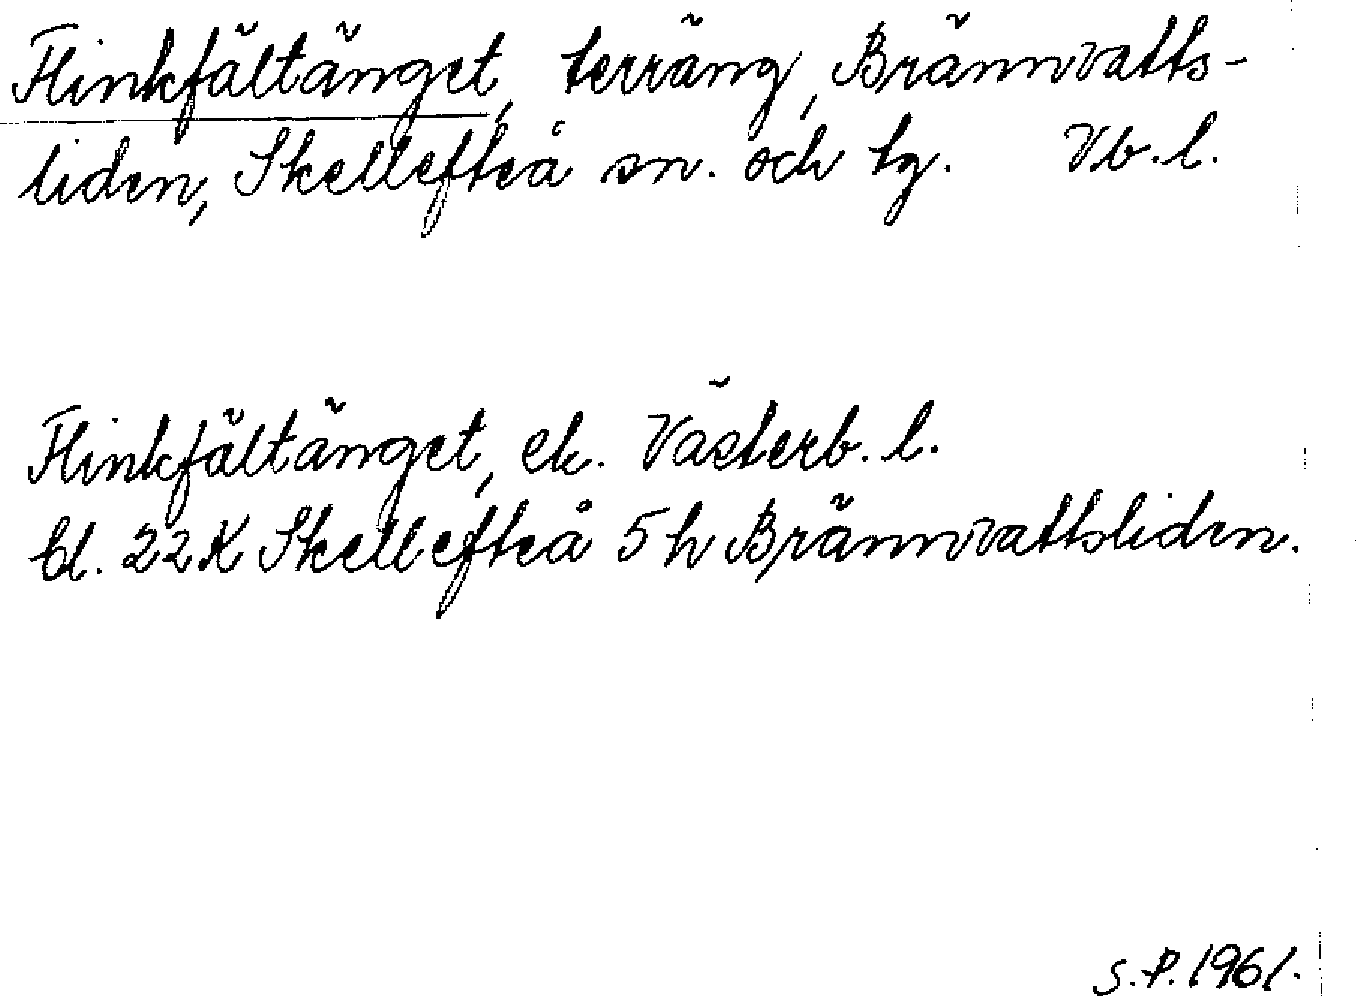 Flinkfältänget, terräng, Brännvatts-
liden, Skellefteå sn. och tg. Vb. l.
Flinkfältänget, ek. Västerb. l.
bl. 22K Skellefteå 5h Brännvattsliden.
S.P. 1961.